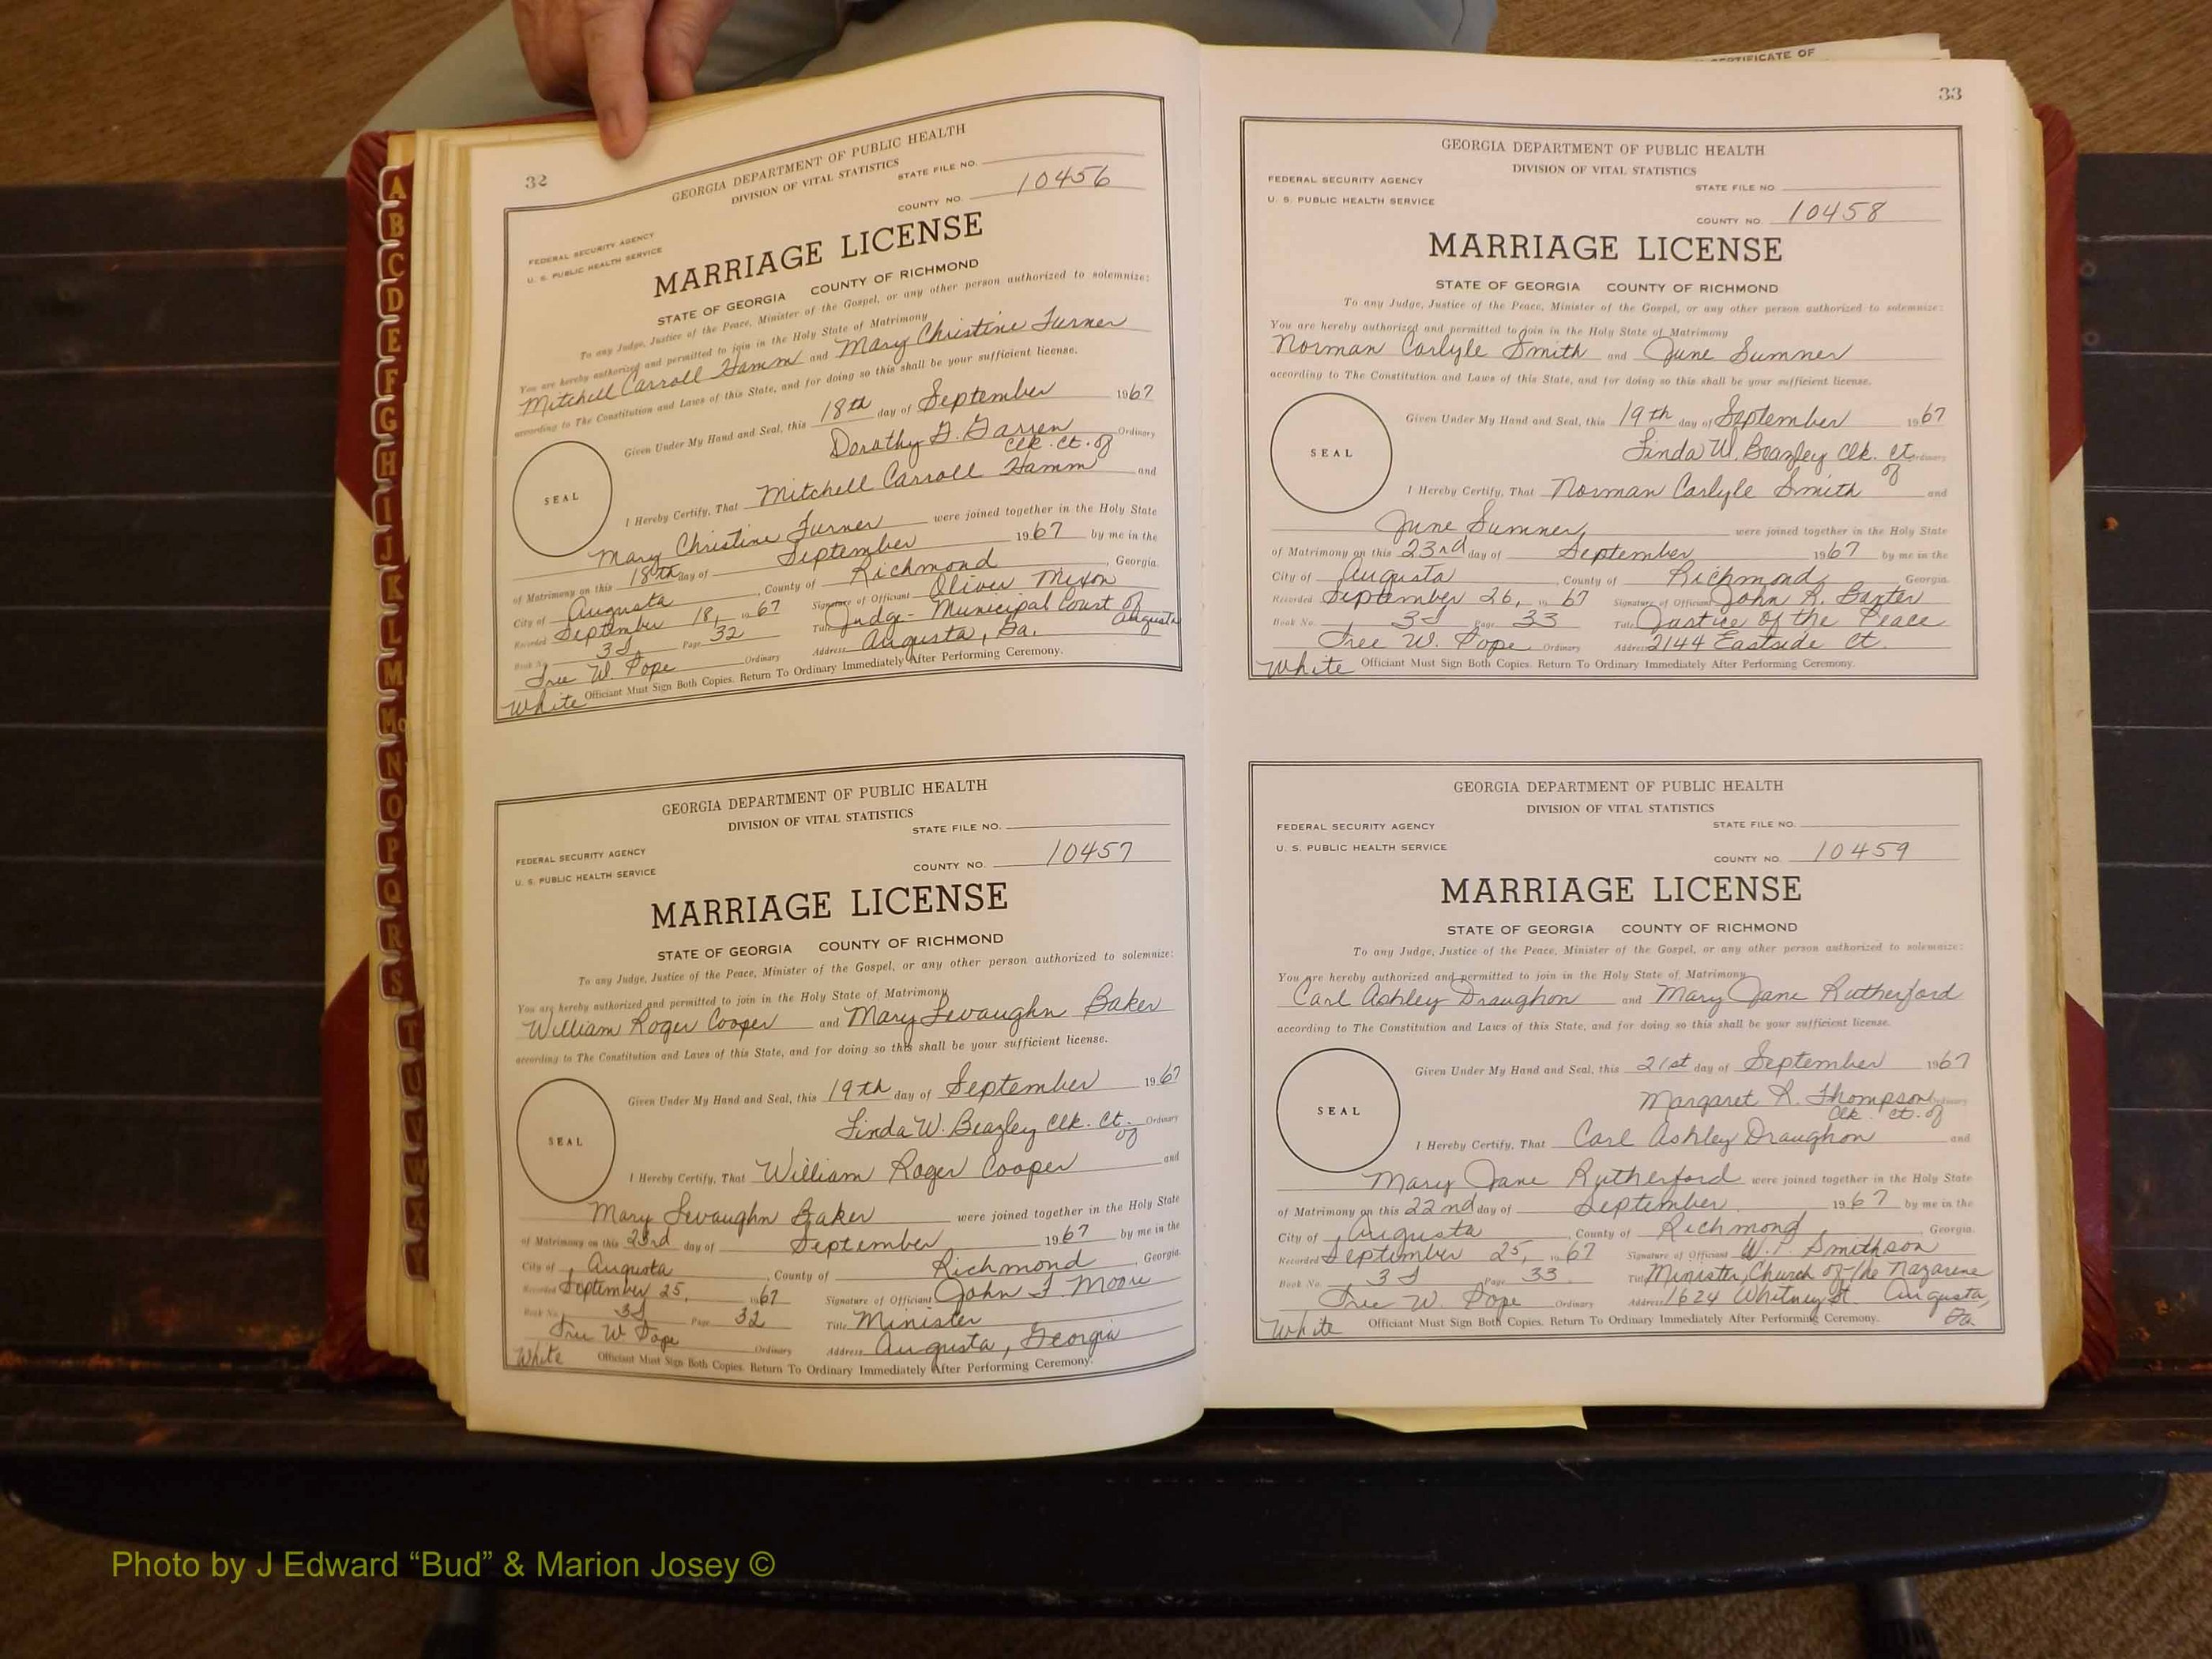 CERTIFICATE OF
A
B
C
D
E
F
G
H
I
J
K
L
M
Mc
N
O
P
Q
R
S
T
U
V
W
32
GEORGIA DEPARTMENT OF PUBLIC HEALTH
DIVISION OF VITAL STATISTICS
STATE FILE NO.
FEDERAL SECURITY AGENCY
U. S. PUBLIC HEALTH SERVICE
COUNTY NO. 10456
MARRIAGE LICENSE
STATE OF GEORGIA COUNTY OF RICHMOND
To any Judge, Justice of the Peace, Minister of the Gospel, or any other person authorized to solemnize:
You are hereby authorized and permitted to join in the Holy State of Matrimony
Mitchell Carroll Hamm and Mary Christine Turner
according to The Constitution and Laws of this State, and for doing so this shall be your sufficient license.
Given Under My Hand and Seal, this 18th day of September 1967
Dorothy Clk. Ct. of Ordinary
SEAL
I Hereby Certify, That Mitchell Carroll Hamm and
Mary Christine Turner were joined together in the Holy State
of Matrimony on this 18th day of September 1967 by me in the
City of Augusta, County of Richmond, Georgia.
Recorded September 18, 1967 Signature of Officiant Oliver Mixon
Book No. 3S, Page 32 Title Judge - Municipal Court of Augusta
W. Pope Ordinary Address Augusta, Ga.
White Officiant Must Sign Both Copies. Return To Ordinary Immediately After Performing Ceremony.
GEORGIA DEPARTMENT OF PUBLIC HEALTH
DIVISION OF VITAL STATISTICS
STATE FILE NO.
FEDERAL SECURITY AGENCY
U. S. PUBLIC HEALTH SERVICE
COUNTY NO. 10457
MARRIAGE LICENSE
STATE OF GEORGIA COUNTY OF RICHMOND
To any Judge, Justice of the Peace, Minister of the Gospel, or any other person authorized to solemnize:
You are hereby authorized and permitted to join in the Holy State of Matrimony
William Roger Cooper and Mary Levaughn Baker
according to The Constitution and Laws of this State, and for doing so this shall be your sufficient license.
Given Under My Hand and Seal, this 19th day of September 1967
Linda W. Beazley Clk. Ct. of Ordinary
SEAL
I Hereby Certify, That William Roger Cooper and
Mary Levaughn Baker were joined together in the Holy State
of Matrimony on this 23rd day of September 1967 by me in the
City of Augusta, County of Richmond, Georgia.
Recorded September 25, 1967 Signature of Officiant John F. Moore
Book No. 3S Page 32 Title Minister
W. Pope Ordinary Address Augusta, Georgia
White Officiant Must Sign Both Copies. Return To Ordinary Immediately After Performing Ceremony.
33
GEORGIA DEPARTMENT OF PUBLIC HEALTH
DIVISION OF VITAL STATISTICS
FEDERAL SECURITY AGENCY
STATE FILE NO
U. S. PUBLIC HEALTH SERVICE
COUNTY NO. 10458
MARRIAGE LICENSE
STATE OF GEORGIA COUNTY OF RICHMOND
To any Judge, Justice of the Peace, Minister of the Gospel, or any other person authorized to solemnize:
You are hereby authorized and permitted to join in the Holy State of Matrimony
Norman Carlyle Smith and June Sumner
according to The Constitution and Laws of this State, and for doing so this shall be your sufficient license.
Given Under My Hand and Seal, this 19th day of September 1967
Linda W. Beazley Clk. Ct. of Ordinary
SEAL
I Hereby Certify, That Norman Carlyle Smith and
June Sumner were joined together in the Holy State
of Matrimony on this 23rd day of September 1967 by me in the
City of Augusta, County of Richmond, Georgia
Recorded September 26, 1967 Signature of Officiant John R. Baxter
Book No. 3S Page 33 Title Justice of the Peace
W. Pope Ordinary Address 2144 Eastside Ct.
White Officiant Must Sign Both Copies. Return To Ordinary Immediately After Performing Ceremony.
GEORGIA DEPARTMENT OF PUBLIC HEALTH
DIVISION OF VITAL STATISTICS
FEDERAL SECURITY AGENCY
STATE FILE NO.
U. S. PUBLIC HEALTH SERVICE
COUNTY NO. 10459
MARRIAGE LICENSE
STATE OF GEORGIA COUNTY OF RICHMOND
To any Judge, Justice of the Peace, Minister of the Gospel, or any other person authorized to solemnize:
You are hereby authorized and permitted to join in the Holy State of Matrimony
Carl Ashley Draughon and Mary Jane Rutherford
according to The Constitution and Laws of this State, and for doing so this shall be your sufficient license.
Given Under My Hand and Seal, this 21st day of September 1967
Margaret R. Thompson Clk. Ct. of Ordinary
SEAL
I Hereby Certify, That Carl Ashley Draughon and
Mary Jane Rutherford were joined together in the Holy State
of Matrimony on this 22nd day of September 1967 by me in the
City of Augusta, County of Richmond, Georgia.
Recorded September 25, 1967 Signature of Officiant Smithson
Book No. 3S Page 33 Title Minister, Church of the Nazarene
W. Pope Ordinary Address 1624 Whitney St. Augusta, Ga.
White Officiant Must Sign Both Copies. Return To Ordinary Immediately After Performing Ceremony.
Photo by J Edward “Bud” & Marion Josey ©